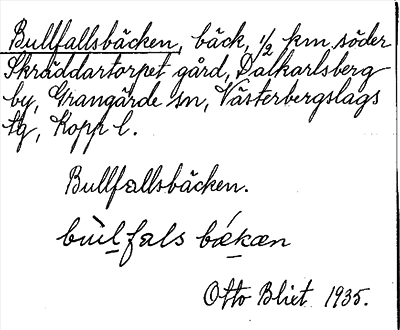 Bullfallsbäcken, bäck, 1/2 km söder
Skräddartorpet gård, Dalkarlsberg
by, Grangärde sn, Västerbergslags
tg, Kopp l.
Bullfallsbäcken.
bùlfals bǽkæn
Otto Blixt 1935.